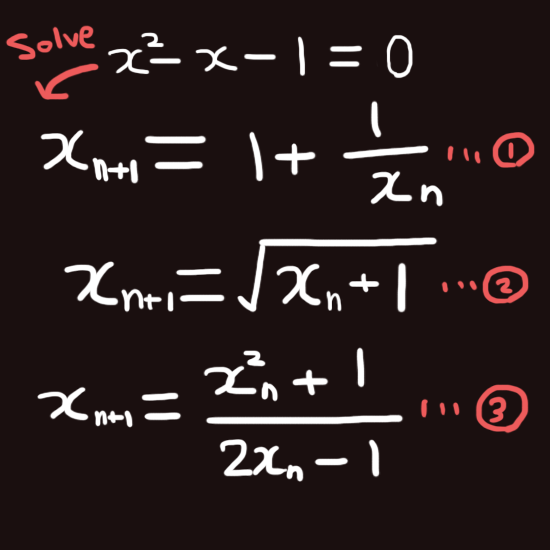 Solve x² - x - 1 = 0
xₙ₊₁ = 1 + 1/xₙ ... ①
xₙ₊₁ = √(xₙ + 1) ... ②
xₙ₊₁ = (xₙ² + 1)/(2xₙ - 1) ... ③